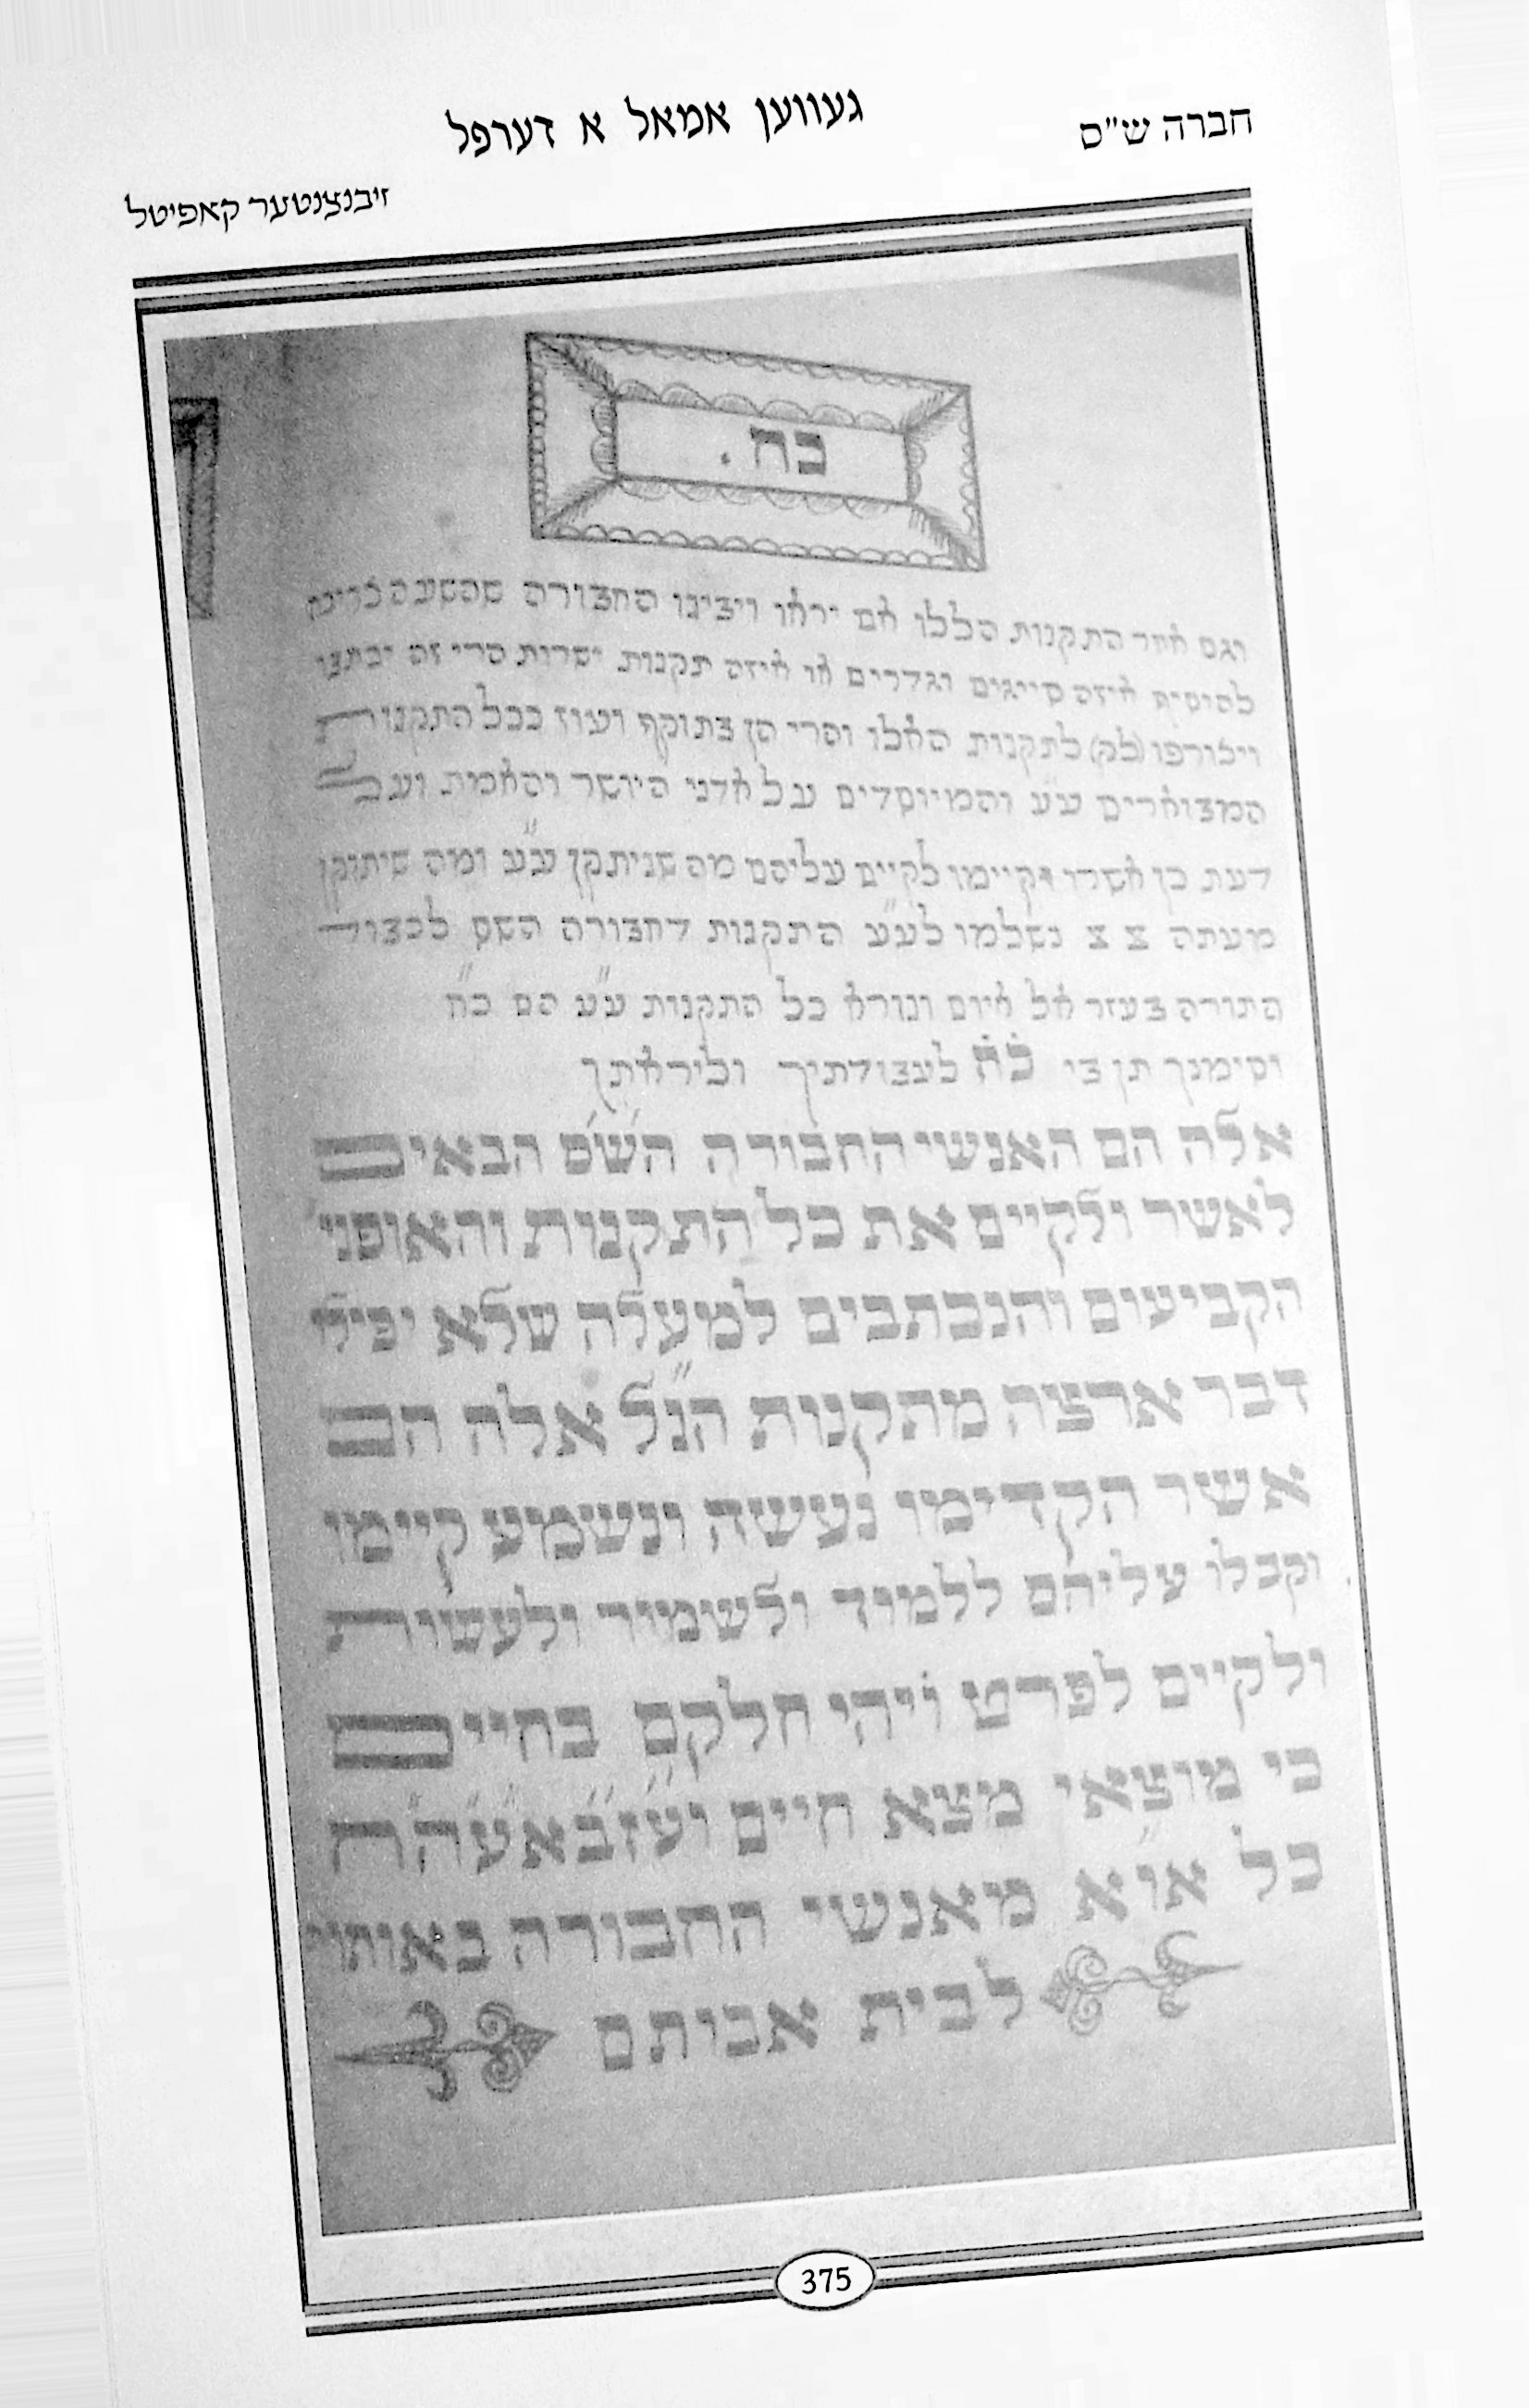 חברה ש"ס
געווען אמאל א דערפל
זיבנצנטער קאפיטל
כח.
וגם אחר התקנות הללו אם יראו ויבינו החבורה שהשעה צריכה
להוסיף איזה סייגים וגדרים או איזה תקנות ישרות הרי זה יכתבו
ויצורפו לתקנות האלו והרי הן בתוקף ועוז ככל התקנות
המבוארים ע"ע והמיוסדים על אדני היושר והאמת ועל
דעת כן אשרו וקיימו לקיים עליהם מה שניתקן ע"ע ומה שיתוקן
מעתה נשלמו לע"ע התקנות דחבורה השס לכבוד
התורה בעזר אל איום ונורא כל התקנות ע"ע הם כ"ח
וסימנך תן בי כח לעבודתיך וליראתך
אלה הם האנשי החבורה הש"ס הבאים
לאשר ולקיים את כל התקנות והאופני
הקביעום והנכתבים למעלה שלא יפילו
דבר ארצה מתקנות הנ"ל אלה הם
אשר הקדימו נעשה ונשמע קיימו
וקבלו עליהם ללמוד ולשמור ולעשות
ולקיים לפרט ויהי חלקם בחיים
כי מוצאי מצא חיים
כל או"א מאנשי החבורה באותו
לבית אבותם
375